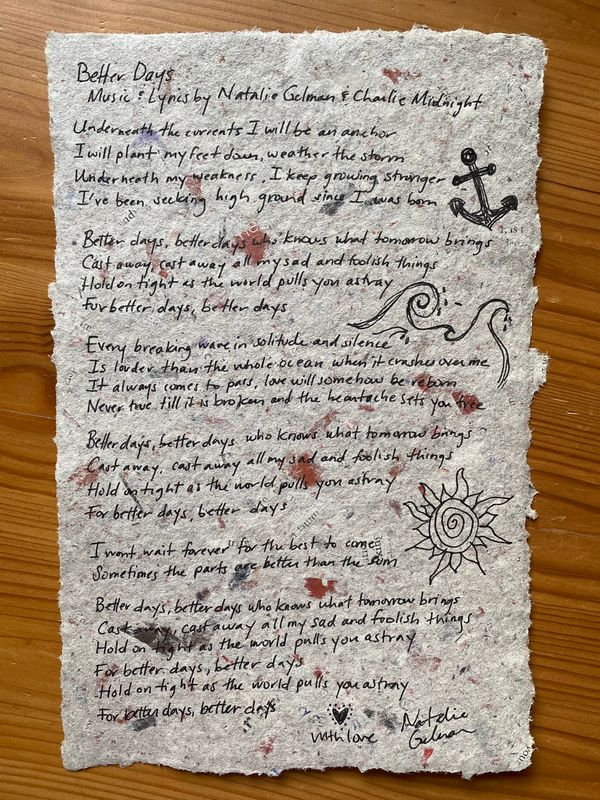 Better Days
Music & Lyrics by Natalie Gelman & Charlie Midnight
Underneath the currents I will be an anchor
I will plant my feet down, weather the storm
Underneath my weakness, I keep growing stronger
I've been seeking high ground since I was born
Better days, better days who knows what tomorrow brings
Cast away, cast away all my sad and foolish things
Hold on tight as the world pulls you astray
For better days, better days
Every breaking wave in solitude and silence
Is louder than the whole ocean when it crashes over me
It always comes to pass, love will somehow be reborn
Never true till it is broken and the heartache sets you free
Better days, better days who knows what tomorrow brings
Cast away, cast away all my sad and foolish things
Hold on tight as the world pulls you astray
For better days, better days
I wont wait forever for the best to come
Sometimes the parts are better than the sum
Better days, better days who knows what tomorrow brings
Cast away, cast away all my sad and foolish things
Hold on tight as the world pulls you astray
For better days, better days
Hold on tight as the world pulls you astray
For better days, better days
with love
Natalie
Gelman